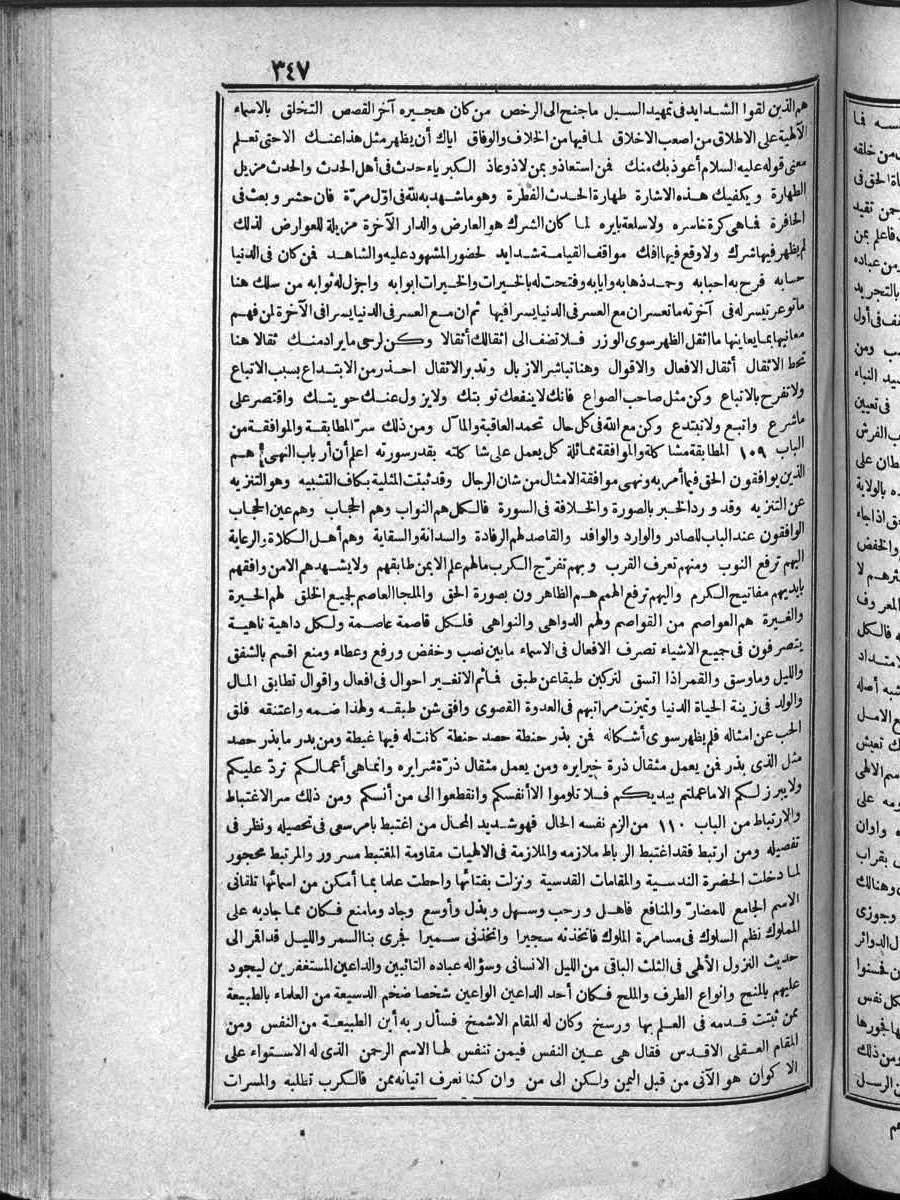 ٣٤٧
هم الذين لقوا الشدايد فى تمهيد السبيل ماجنح الى الرخص من كان هجيره آخر القصص التخلق بالاسماء
الآلهية على الاطلاق من اصعب الاخلاق لما فيها من الخلاف والوفاق اياك أن يظهر مثل هذا عنك الاحتى تعلم
معنى قوله عليه السلام أعوذ بك منك فمن استعاذ وبمن لاذ وعاذ الكبرياء حدث فى أهل الحدث والحدث مزيل
الطهارة ويكفيك هذه الاشارة طهارة الحدث الفطرة وهو ماشهد به لله فى اوّل مرّة فان حشر وبعث فى
الحافرة فماهى كرة خاسره ولا سلعة بايره لما كان الشرك هو العارض والدار الآخرة مزيلة للعوارض لذلك
لم يظهر فيها شرك ولا وقع فيها افك مواقف القيامة شدايد لحضور المشهود عليه والشاهد فمن كان فى الدنيا
حسابه فرح به احبابه وحمد ذهابه وايابه وفتحت له بالخيرات والخيرات ابوابه واجزل له ثوابه من سلك هنا
ماتوعر تيسر له فى آخرته ماتعسر ان مع العسر فى الدنيا يسرا فيها ثم ان مع العسر فى الدنيا يسرا فى الآخرة لمن فهم
معانيها بما يعاينها ما اثقل الظهر سوى الوزر فلا تضف الى اثقالك أثقالا وكن لرحى ما يراد منك ثقالا هنا
تحط الاثقال أثقال الافعال والاقوال وهنا تباشر الازبال وتدبر الاثقال احذر من الابتداع بسبب الاتباع
ولا تفرح بالاتباع وكن مثل صاحب الصواع فانك لا ينفعك توبتك ولا يزول عنك حوبتك واقتصر على
ماشرع واتبع ولا تبتدع وكن مع الله فى كل حال تحمد العاقبة والمآل ومن ذلك سرّ المطابقة والموافقة من
الباب ١٠٩ المطابقة مشاكلة والموافقة مماثلة كل يعمل على شاكلته بقدر سورته اعلم أن أرباب النهى هم
الذين يوافقون الحق فيما أمر به ونهى موافقة الامثال من شان الرجال وقد ثبتت المثلية بكاف التشبيه وهو التنزيه
عن التنزيه وقد ورد الخبر بالصورة والخلافة فى السورة فالكل هم النواب وهم الحجاب وهم عين الحجاب
الواقفون عند الباب للصادر والوارد والوافد والقاصد لهم الرفادة والسدانة والسقاية وهم أهل الكلاة والرعاية
اليهم ترفع النوب ومنهم تعرف القرب وبهم تفرّج الكرب مالهم علم الابمن طابقهم ولا يشهدهم الا من وافقهم
بايديهم مفاتيح الكرم واليهم ترفع الهمم هم الظاهرون بصورة الحق والملجا العاصم لجميع الخلق لهم الحيرة
والغيرة هم العواصم من القواصم ولهم الدواهى والنواهى فلكل قاصمة عاصمة ولكل داهية ناهية
يتصرفون فى جميع الاشياء تصرف الافعال فى الاسماء مابين نصب وخفض ورفع وعطاء ومنع اقسم بالشفق
والليل وماوسق والقمر اذا اتسق لتركبن طبقا عن طبق فما ثم الا تغير احوال فى افعال واقوال تطابق المال
والولد فى زينة الحياة الدنيا وتميزت مراتبهم فى العدوة القصوى وافق شن طبقه ولهذا ضمه واعتنقه فلق
الحب عن امثاله فلم يظهر سوى أشكاله فمن بذر حنطة حصد حنطة كانت له فيها غبطة ومن بدر مابذر حصد
مثل الذى بذر فمن يعمل مثقال ذرة خيرايره ومن يعمل مثقال ذرّة شرايره وانماهى أعمالكم تردّ عليكم
ولا يبرز لكم الاماعملتم بيديكم فلا تلوموا الا أنفسكم وانقطعوا الى من أنسكم ومن ذلك سر الاغتباط
والارتباط من الباب ١١٠ من الزم نفسه الحال فهو شديد المحال من اغتبط بامر سعى فى تحصيله ونظر فى
تفصيله ومن ارتبط فقد اغتبط الرباط ملازمه والملازمة فى الالهيات مقاومة المغتبط مسرور والمرتبط محجور
لما دخلت الحضرة الندسية والمقامات القدسية ونزلت بفنائها واحطت علما بما أمكن من اسمائها تلقانى
الاسم الجامع للمضارّ والمنافع فاهل ورحب وسهل وبذل وأوسع وجاد ومامنع فكان مما جادبه على
المملوك نظم السلوك فى مسامرة الملوك فاتخذته سجيرا واتخذنى سميرا فجرى بنا السمر والليل قد اقر الى
حديث النزول الآلهى فى الثلث الباقى من الليل الانسانى وسؤاله عباده التائبين والداعين المستغفرين ليجود
عليهم بالمنح وانواع الطرف والملح فكان أحد الداعين الواعين شخصا ضخم الدسيعة من العلماء بالطبيعة
ممن ثبتت قدمه فى العلم بها ورسخ وكان له المقام الاشمخ فسأل ربه أين الطبيعة من النفس ومن
المقام العقلى الاقدس فقال هى عين النفس فيمن تنفس لها الاسم الرحمن الذى له الاستواء على
الاكوان هو الآتى من قبل اليمن ولكن الى من وان كنا نعرف اتيانه ممن فالكرب تطلبه والمسرات